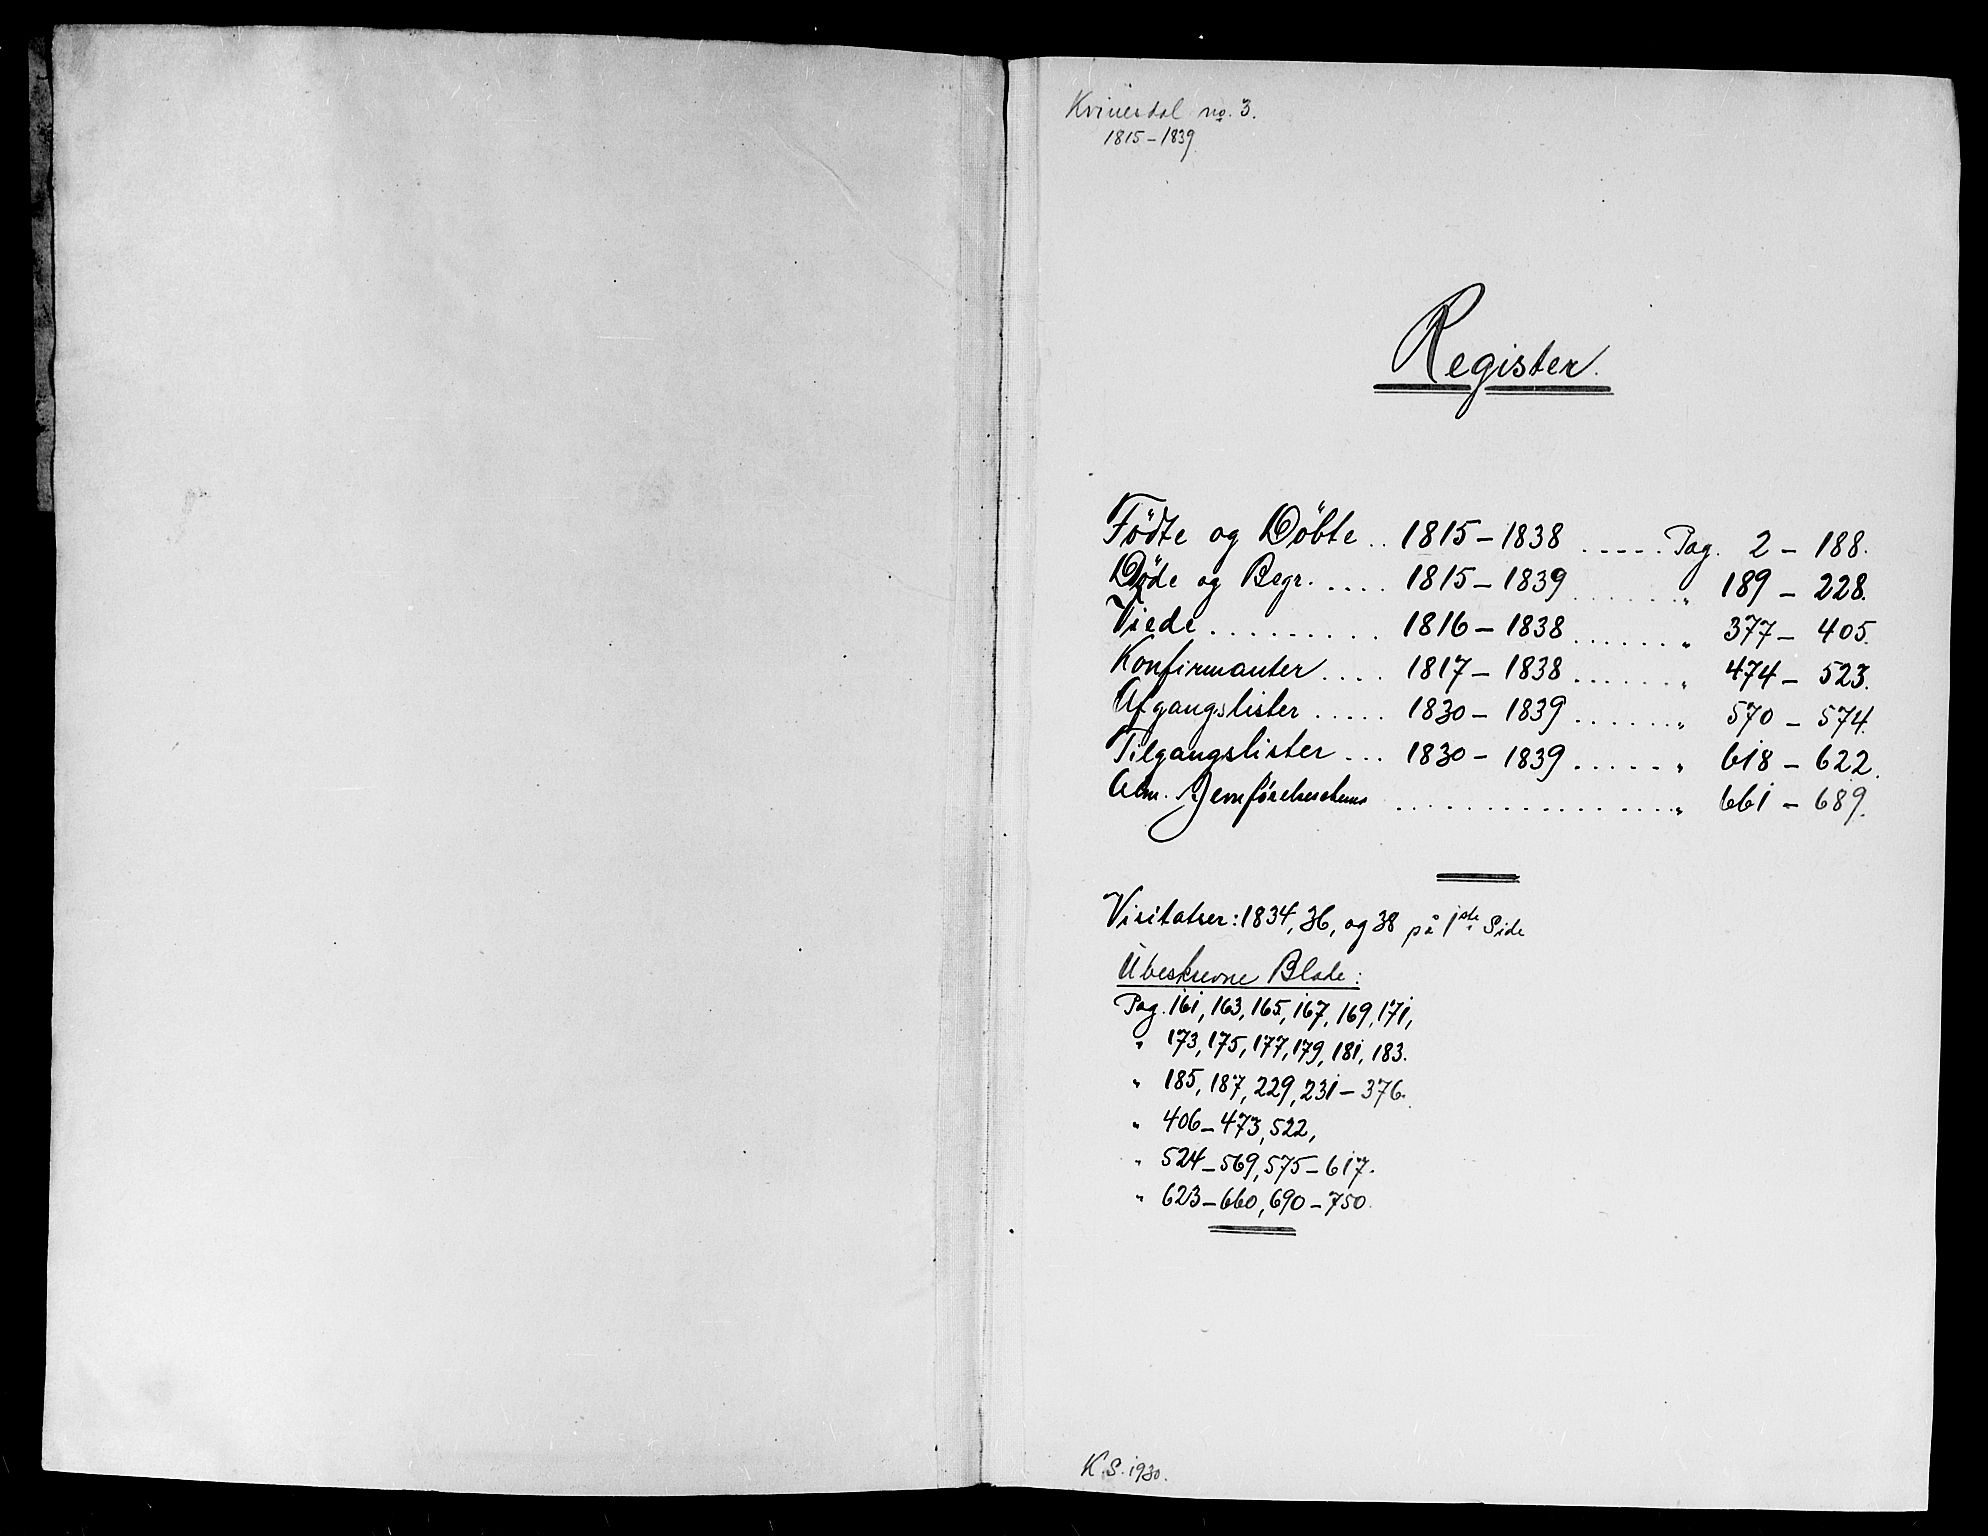 Kvinesdal no. 3.
1815–1839
Register.
Födte og Döbte .. 1815–1838 ..... Pag. 2 – 188.
Döde og Begr. .... 1815–1839 ...... " 189 – 228.
Viede ......... 1816–1838 ...... " 377 – 405.
Konfirmanter .... 1817–1838 ...... " 474 – 523.
Afgangslister ..... 1830–1839 ...... " 570 – 574.
Tilgangslister ... 1830–1839 ...... " 618 – 622.
Alm. Jevnförelses ............... " 661 – 689.
Visitatser: 1834, 36, og 38 på 1ste Side
Ubeskrevne Blade:
Pag. 161, 163, 165, 167, 169, 171,
" 173, 175, 177, 179, 181, 183.
" 185, 187, 229, 231–376.
" 406–473, 522,
" 524–569, 575–617.
" 623–660, 690–750.
K.S. 1930.